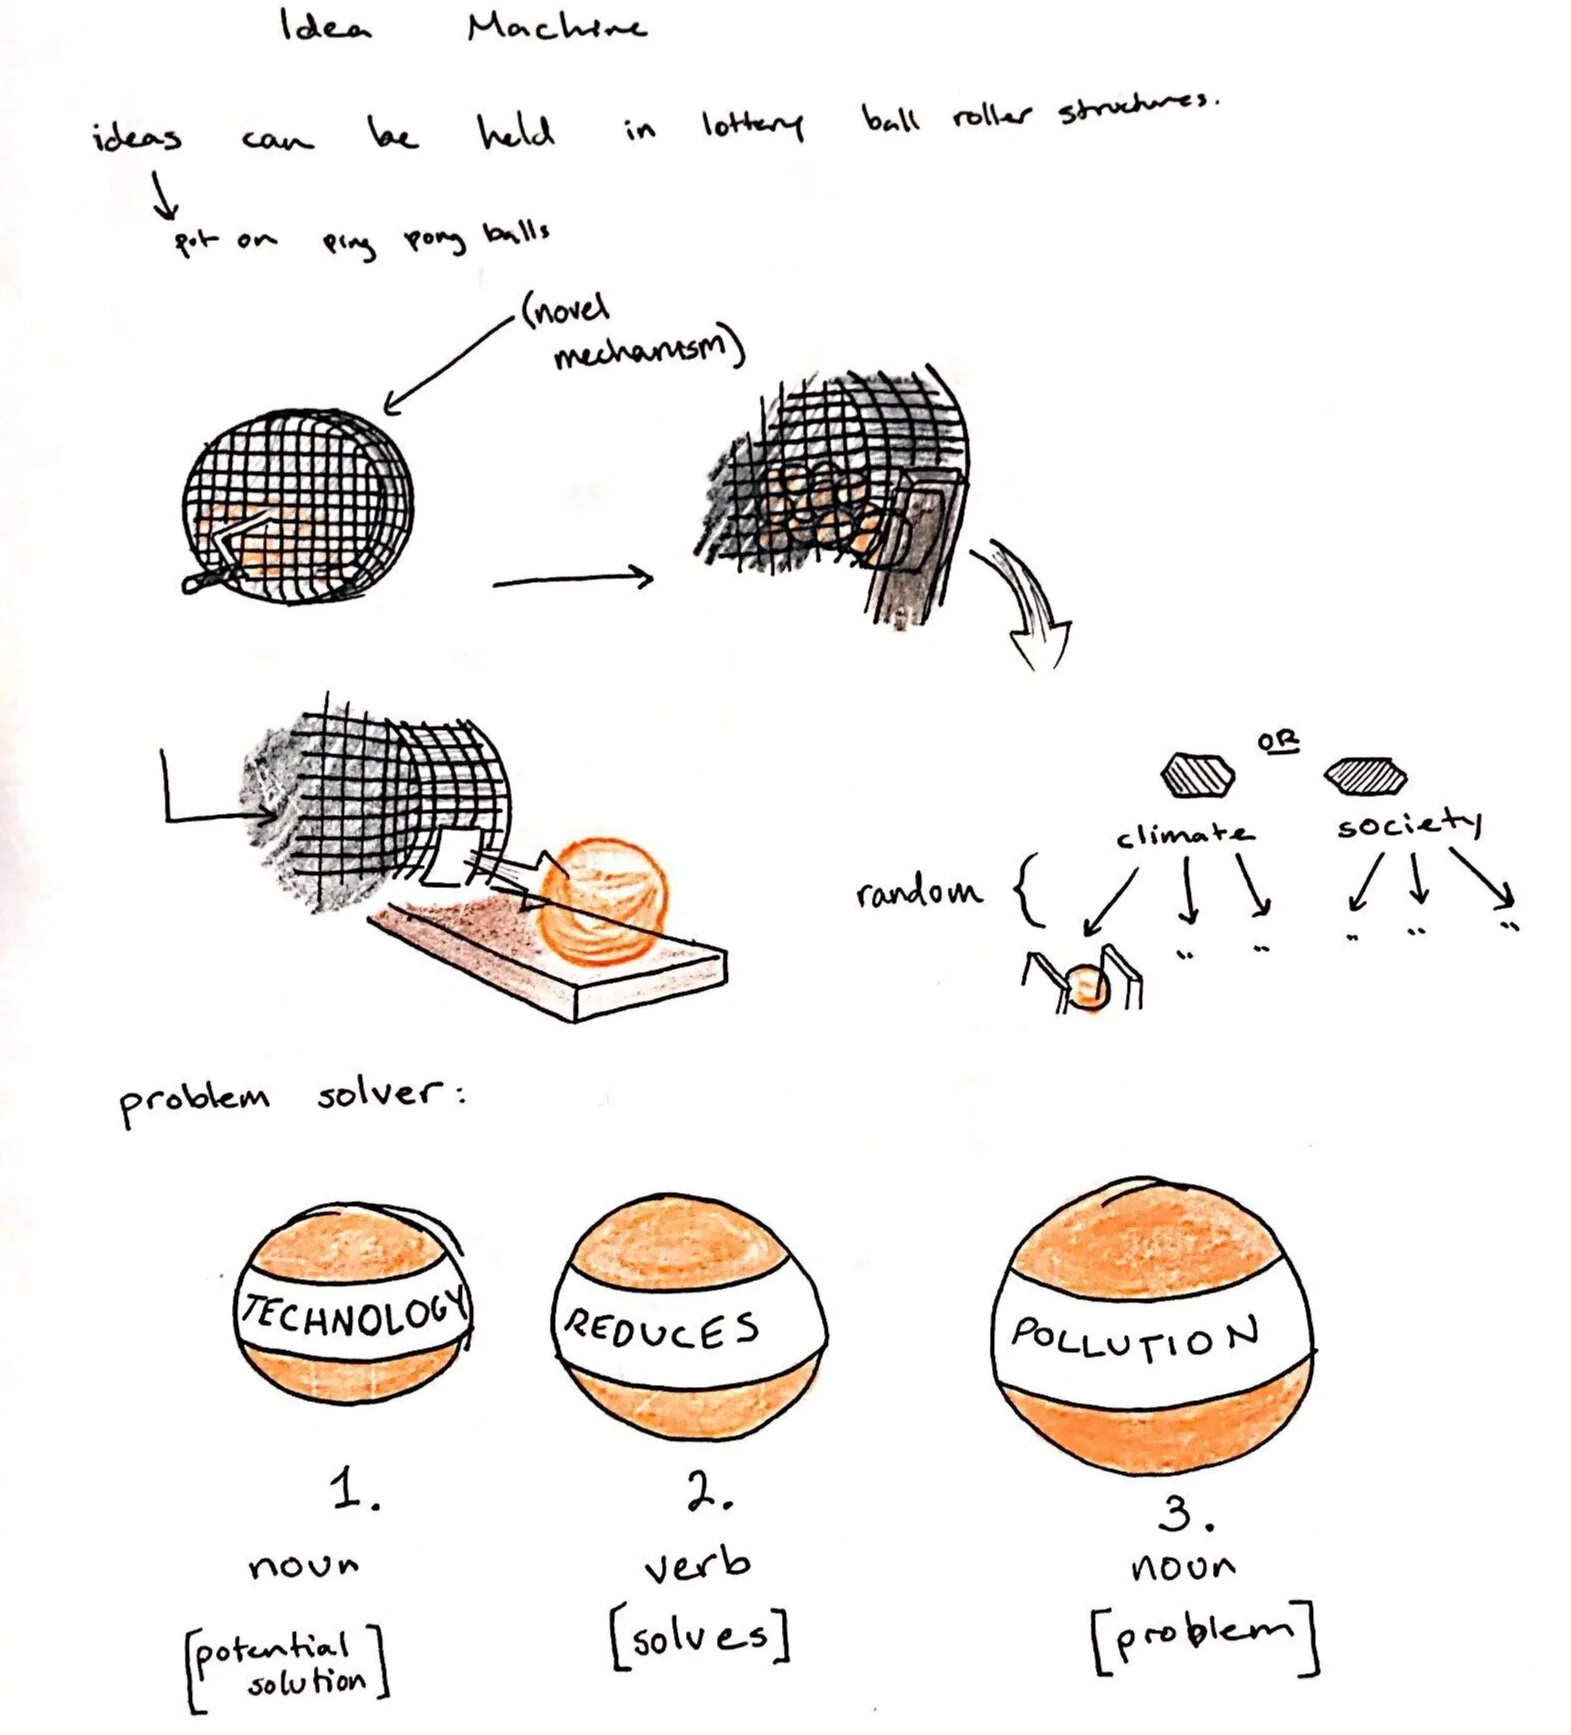 Idea Machine
ideas can be held in lottery ball roller structures.
put on ping pong balls
(novel
mechanism)
OR
climate
society
random
problem solver:
TECHNOLOGY
REDUCES
POLLUTION
1.
2.
3.
noun
verb
noun
[potential
solution]
[solves]
[problem]